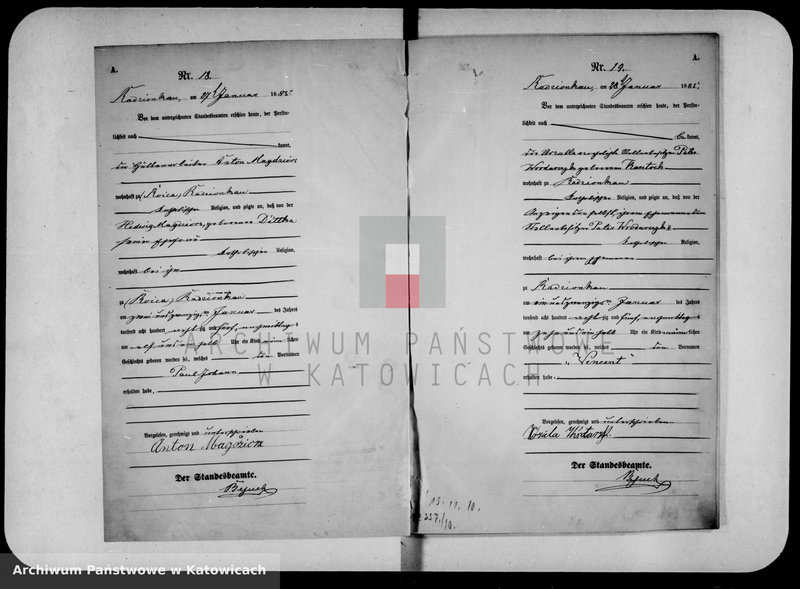 A.
Nr. 18.
Radzionkau, am 27ten Januar 1885.
Vor dem unterzeichneten Standesbeamten erschien heute, der Persön-
lichkeit nach
kannt,
der Hüttenarbeiter Anton
wohnhaft zu (Roica) Radzionkau
katholischer Religion, und zeigte an, daß von der
Hedwig geborenen
seiner Ehefrau
katholischer Religion,
wohnhaft bei ihm
zu (Roica) Radzionkau
am zwei und zwanzigsten Januar des Jahres
tausend acht hundert achtzig und fünf, vormittags
um elf und ein halb Uhr ein Kind männlichen
Geschlechts geboren worden sei, welches den Vornamen
Paul Johann
erhalten habe.
Vorgelesen, genehmigt und unterschrieben
Anton
Der Standesbeamte.
A.
Nr. 19.
Radzionkau, am 28ten Januar 1885.
Vor dem unterzeichneten Standesbeamten erschien heute, der Persön-
lichkeit nach
bekannt,
die verehelichte Stellenbesitzer
geborenen
wohnhaft zu Radzionkau
katholischer Religion, und zeigte an, daß von der
Anzeigenden selbst, ihrem Ehemanne dem
Stellenbesitzer
katholischer Religion,
wohnhaft bei ihrem Ehemanne
zu Radzionkau
am ein und zwanzigsten Januar des Jahres
tausend acht hundert achtzig und fünf,
um zehn und ein halb Uhr ein Kind männlichen
Geschlechts geboren worden sei, welches den Vornamen
"Vincent"
erhalten habe.
Vorgelesen, genehmigt und unterschrieben
Der Standesbeamte.
13. 11. 10.
237/10.
ARCHIWUM PAŃSTWOWE
W KATOWICACH
Archiwum Państwowe w Katowicach